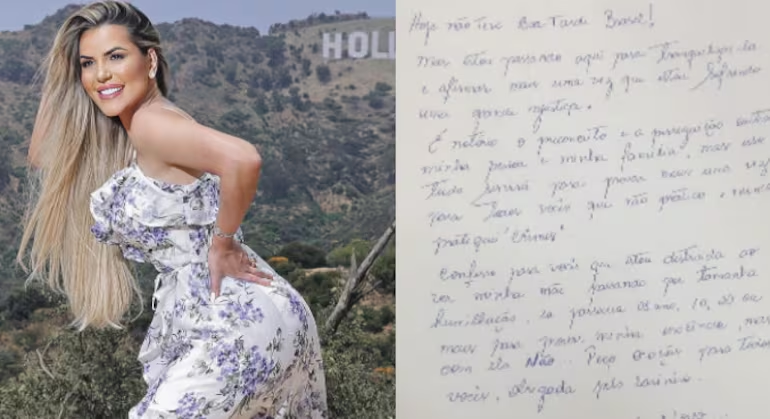 HOLL
Hoje não teve Boa Tarde Brasil!
Mas estou passando aqui para tranquiliza-la
e afirmar mais uma vez que estou sofrendo
uma grande injustiça.
É notório o preconceito e a perseguição contra
minha pessoa e minha família, mas isso
tudo servirá para provar mais uma vez
para todos vocês que não pratico e nunca
pratiquei "Crimes"
Confesso para vocês que estou destruída ao
ver minha mãe passando por tamanha
humilhação, eu passaria 05 ano, 10, 20 ou
mais para provar minha inocência, mas
com ela Não.. Peço orações para todos
vocês, obrigada pelo carinho.